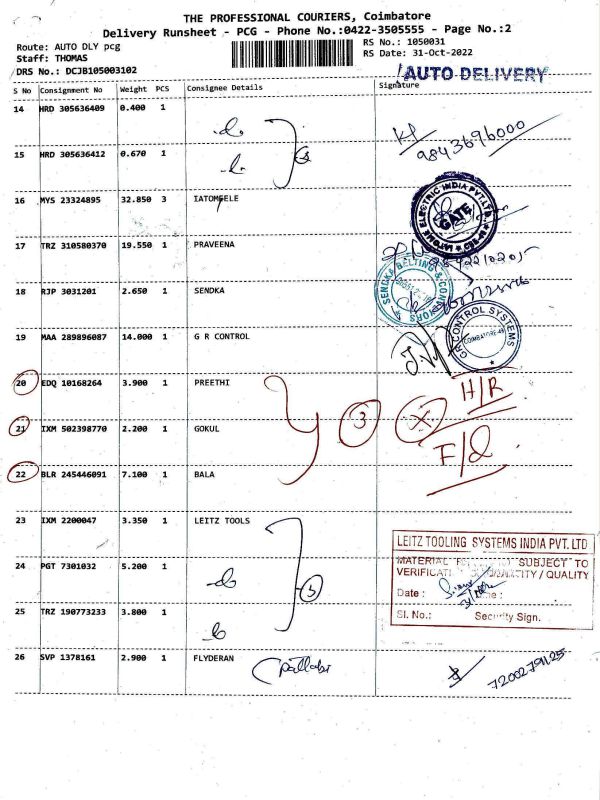 THE PROFESSIONAL COURIERS, Coimbatore
Delivery Runsheet - PCG - Phone No.:0422-3505555 - Page No.:2
Route: AUTO DLY pcg
Staff: THOMAS
DRS No.: DCJB105003102
RS No.: 1050031
RS Date: 31-Oct-2022
AUTO DELIVERY
S No Consignment No Weight PCS Consignee Details Signature
14 HRD 305636409 0.400 1
9843696000
15 HRD 305636412 0.670 1
16 MYS 23324895 32.850 3 IATOME ELE
GATE
17 TRZ 310580370 19.550 1 PRAVEENA
18 RJP 3031201 2.650 1 SENDKA
SENDKA BELTING &
19 MAA 289896087 14.000 1 G R CONTROL
G.R. CONTROL SYSTEMS
COIMBATORE-49
20 EDQ 10168264 3.900 1 PREETHI
3 X H/R
21 IXM 502398770 2.200 1 GOKUL
F/d
22 BLR 245446091 7.100 1 BALA
23 IXM 2200047 3.350 1 LEITZ TOOLS
LEITZ TOOLING SYSTEMS INDIA PVT. LTD
24 PGT 7301032 5.200 1
MATERIAL SUBJECT TO
VERIFICATION QUANTITY / QUALITY
Date :
25 TRZ 190773233 3.800 1
Sl. No.: Security Sign.
26 SVP 1378161 2.900 1 FLYDERAN
Pallabi
7200279125